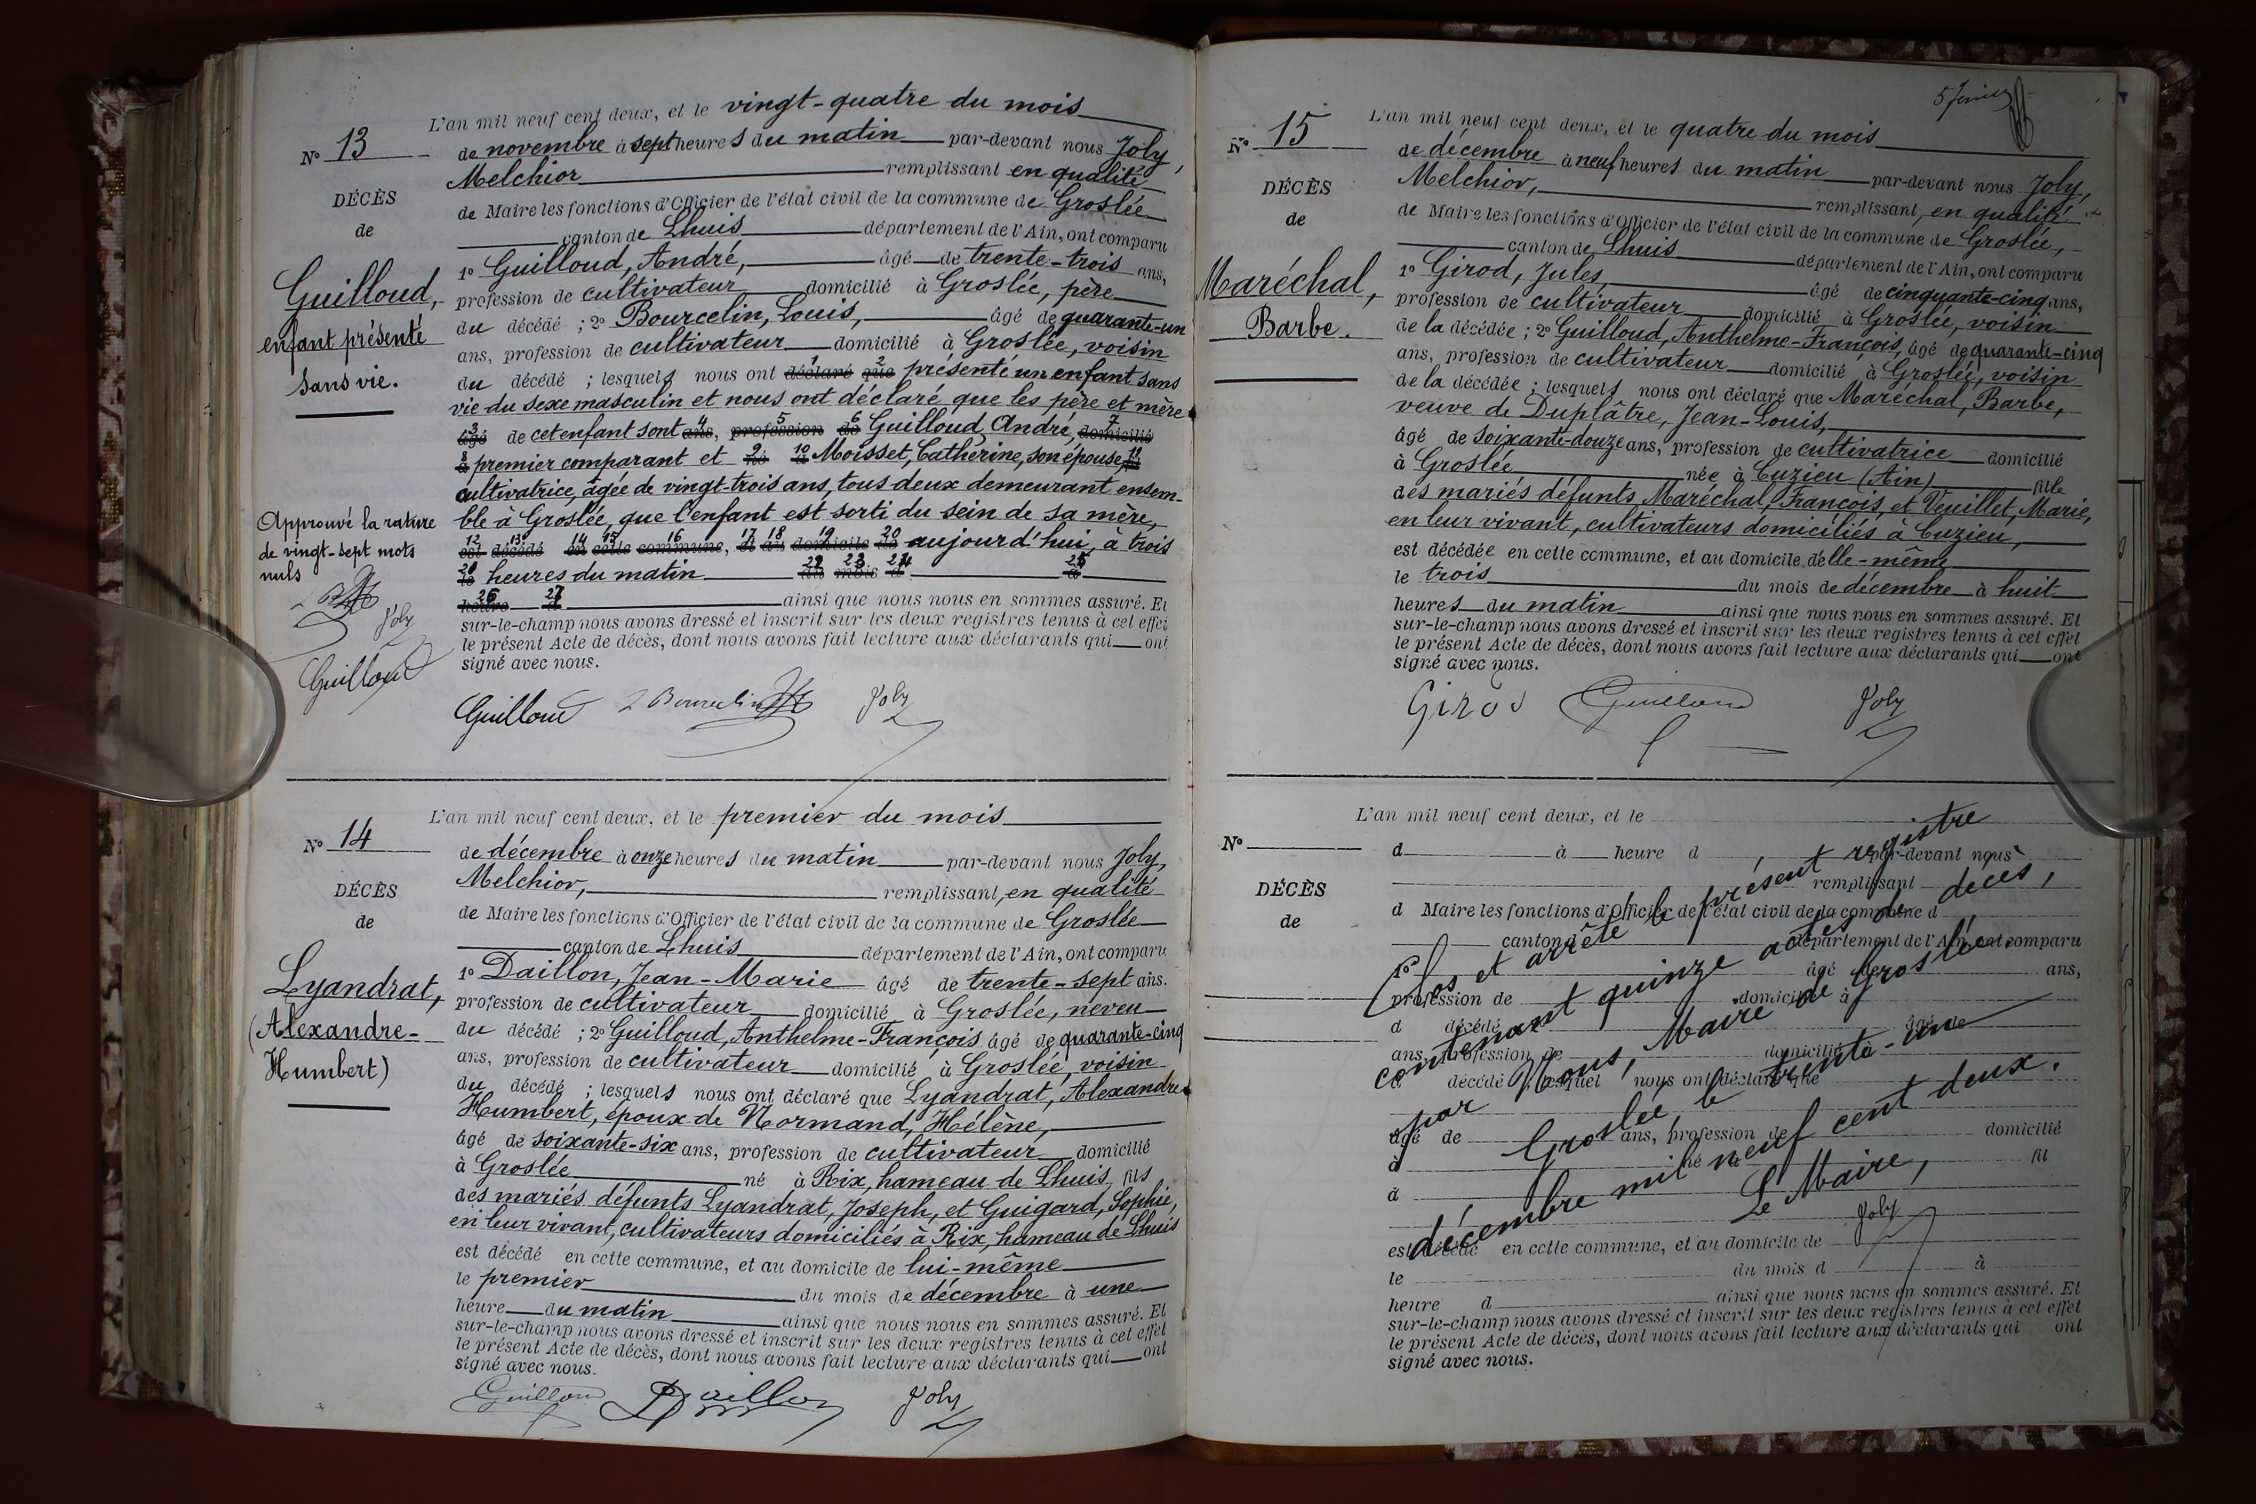 L'an mil neuf cent deux, et le vingt-quatre du mois
N° 13
de novembre à sept heures du matin par-devant nous Joly,
Melchior remplissant en qualité
DÉCÈS
de Maire les fonctions d'Officier de l'état civil de la commune de Groslée
de
canton de Lhuis département de l'Ain, ont comparu
1° Guilloud, André, âgé de trente-trois ans,
Guilloud,
profession de cultivateur domicilié à Groslée, père
du décédé ; 2° Bourcelin, Louis, âgé de quarante-un
enfant présenté
ans, profession de cultivateur domicilié à Groslée, voisin
sans vie.
du décédé ; lesquels nous ont déclaré 1 que 2 présenté un enfant sans
vie du sexe masculin et nous ont déclaré que les père et mère
âgé 3 de cet enfant sont ans 4, profession 5 de 6 Guilloud, André, domicilié 7
à 8 premier comparant et né à 10 Moisset, Catherine, son épouse, 11
cultivatrice, âgée de vingt-trois ans, tous deux demeurant ensem-
ble à Groslée, que l'enfant est sorti du sein de sa mère,
Approuvé la rature
de vingt-sept mots
nuls
est 12 décédé 13 en 14 cette 15 commune 16, et 17 au 18 domicile 19 de 20 aujourd'hui, à trois
le heures du matin du 22 mois 23 d 24 à 25
heure 26 d 27 ainsi que nous nous en sommes assuré. Et
sur-le-champ nous avons dressé et inscrit sur les deux registres tenus à cet effet
le présent Acte de décès, dont nous avons fait lecture aux déclarants qui ont
signé avec nous.
Joly
Guilloud
Guilloud L Bourcelin Joly
L'an mil neuf cent deux, et le premier du mois
N° 14
de décembre à onze heures du matin par-devant nous Joly,
Melchior, remplissant, en qualité
DÉCÈS
de Maire les fonctions d'Officier de l'état civil de la commune de Groslée
de
canton de Lhuis département de l'Ain, ont comparu
1° Daillon, Jean-Marie âgé de trente-sept ans.
Lyandrat,
profession de cultivateur domicilié à Groslée, neveu
(Alexandre-
du décédé ; 2° Guilloud, Anthelme-François âgé de quarante-cinq
Humbert)
ans, profession de cultivateur domicilié à Groslée, voisin
du décédé ; lesquels nous ont déclaré que Lyandrat, Alexandre
Humbert, époux de Normand, Hélène,
âgé de soixante-six ans, profession de cultivateur domicilié
à Groslée né à Rix, hameau de Lhuis, fils
des mariés défunts Lyandrat, Joseph, et Guigard, Sophie,
en leur vivant, cultivateurs domiciliés à Rix, hameau de Lhuis
est décédé en cette commune, et au domicile de lui-même
le premier du mois de décembre à une
heure du matin ainsi que nous nous en sommes assuré. Et
sur-le-champ nous avons dressé et inscrit sur les deux registres tenus à cet effet
le présent Acte de décès, dont nous avons fait lecture aux déclarants qui ont
signé avec nous.
Guilloud Daillon Joly
L'an mil neuf cent deux, et le quatre du mois
N° 15
de décembre à neuf heures du matin par-devant nous Joly,
Melchior, remplissant, en qualité
DÉCÈS
de Maire les fonctions d'Officier de l'état civil de la commune de Groslée,
de
canton de Lhuis département de l'Ain, ont comparu
1° Girod, Jules, âgé de cinquante-cinq ans,
Maréchal,
profession de cultivateur domicilié à Groslée, voisin
Barbe.
de la décédée ; 2° Guilloud, Anthelme-François, âgé de quarante-cinq
ans, profession de cultivateur domicilié à Groslée, voisin
de la décédée ; lesquels nous ont déclaré que Maréchal, Barbe,
veuve de Duplâtre, Jean-Louis,
âgé de soixante-douze ans, profession de cultivatrice domicilié
à Groslée née à Cuzieu (Ain) fille
des mariés défunts Maréchal, François, et Veuillet, Marie,
en leur vivant, cultivateurs domiciliés à Cuzieu,
est décédée en cette commune, et au domicile d'elle-même
le trois du mois de décembre à huit
heures du matin ainsi que nous nous en sommes assuré. Et
sur-le-champ nous avons dressé et inscrit sur les deux registres tenus à cet effet
le présent Acte de décès, dont nous avons fait lecture aux déclarants qui ont
signé avec nous.
Girod Guilloud Joly
L'an mil neuf cent deux, et le
N°
d à heure d par-devant nous
remplissant
DÉCÈS
d Maire les fonctions d'Officier de l'état civil de la commune d
de
canton d département de l'Ain, ont comparu
1° âgé de ans,
profession de domicilié à
d décédé âgé de
ans, profession de domicilié à
d décédé lesquel nous ont déclaré que
âgé de ans, profession de domicilié
à né
à fil
est décédé en cette commune, et au domicile de
le du mois d à
heure d ainsi que nous nous en sommes assuré. Et
sur-le-champ nous avons dressé et inscrit sur les deux registres tenus à cet effet
le présent Acte de décès, dont nous avons fait lecture aux déclarants qui ont
signé avec nous.
Clos et arrêté le présent registre
contenant quinze actes de décès,
par Nous, Maire de Groslée.
Groslée, le trente-un
décembre mil neuf cent deux.
Le Maire,
Joly